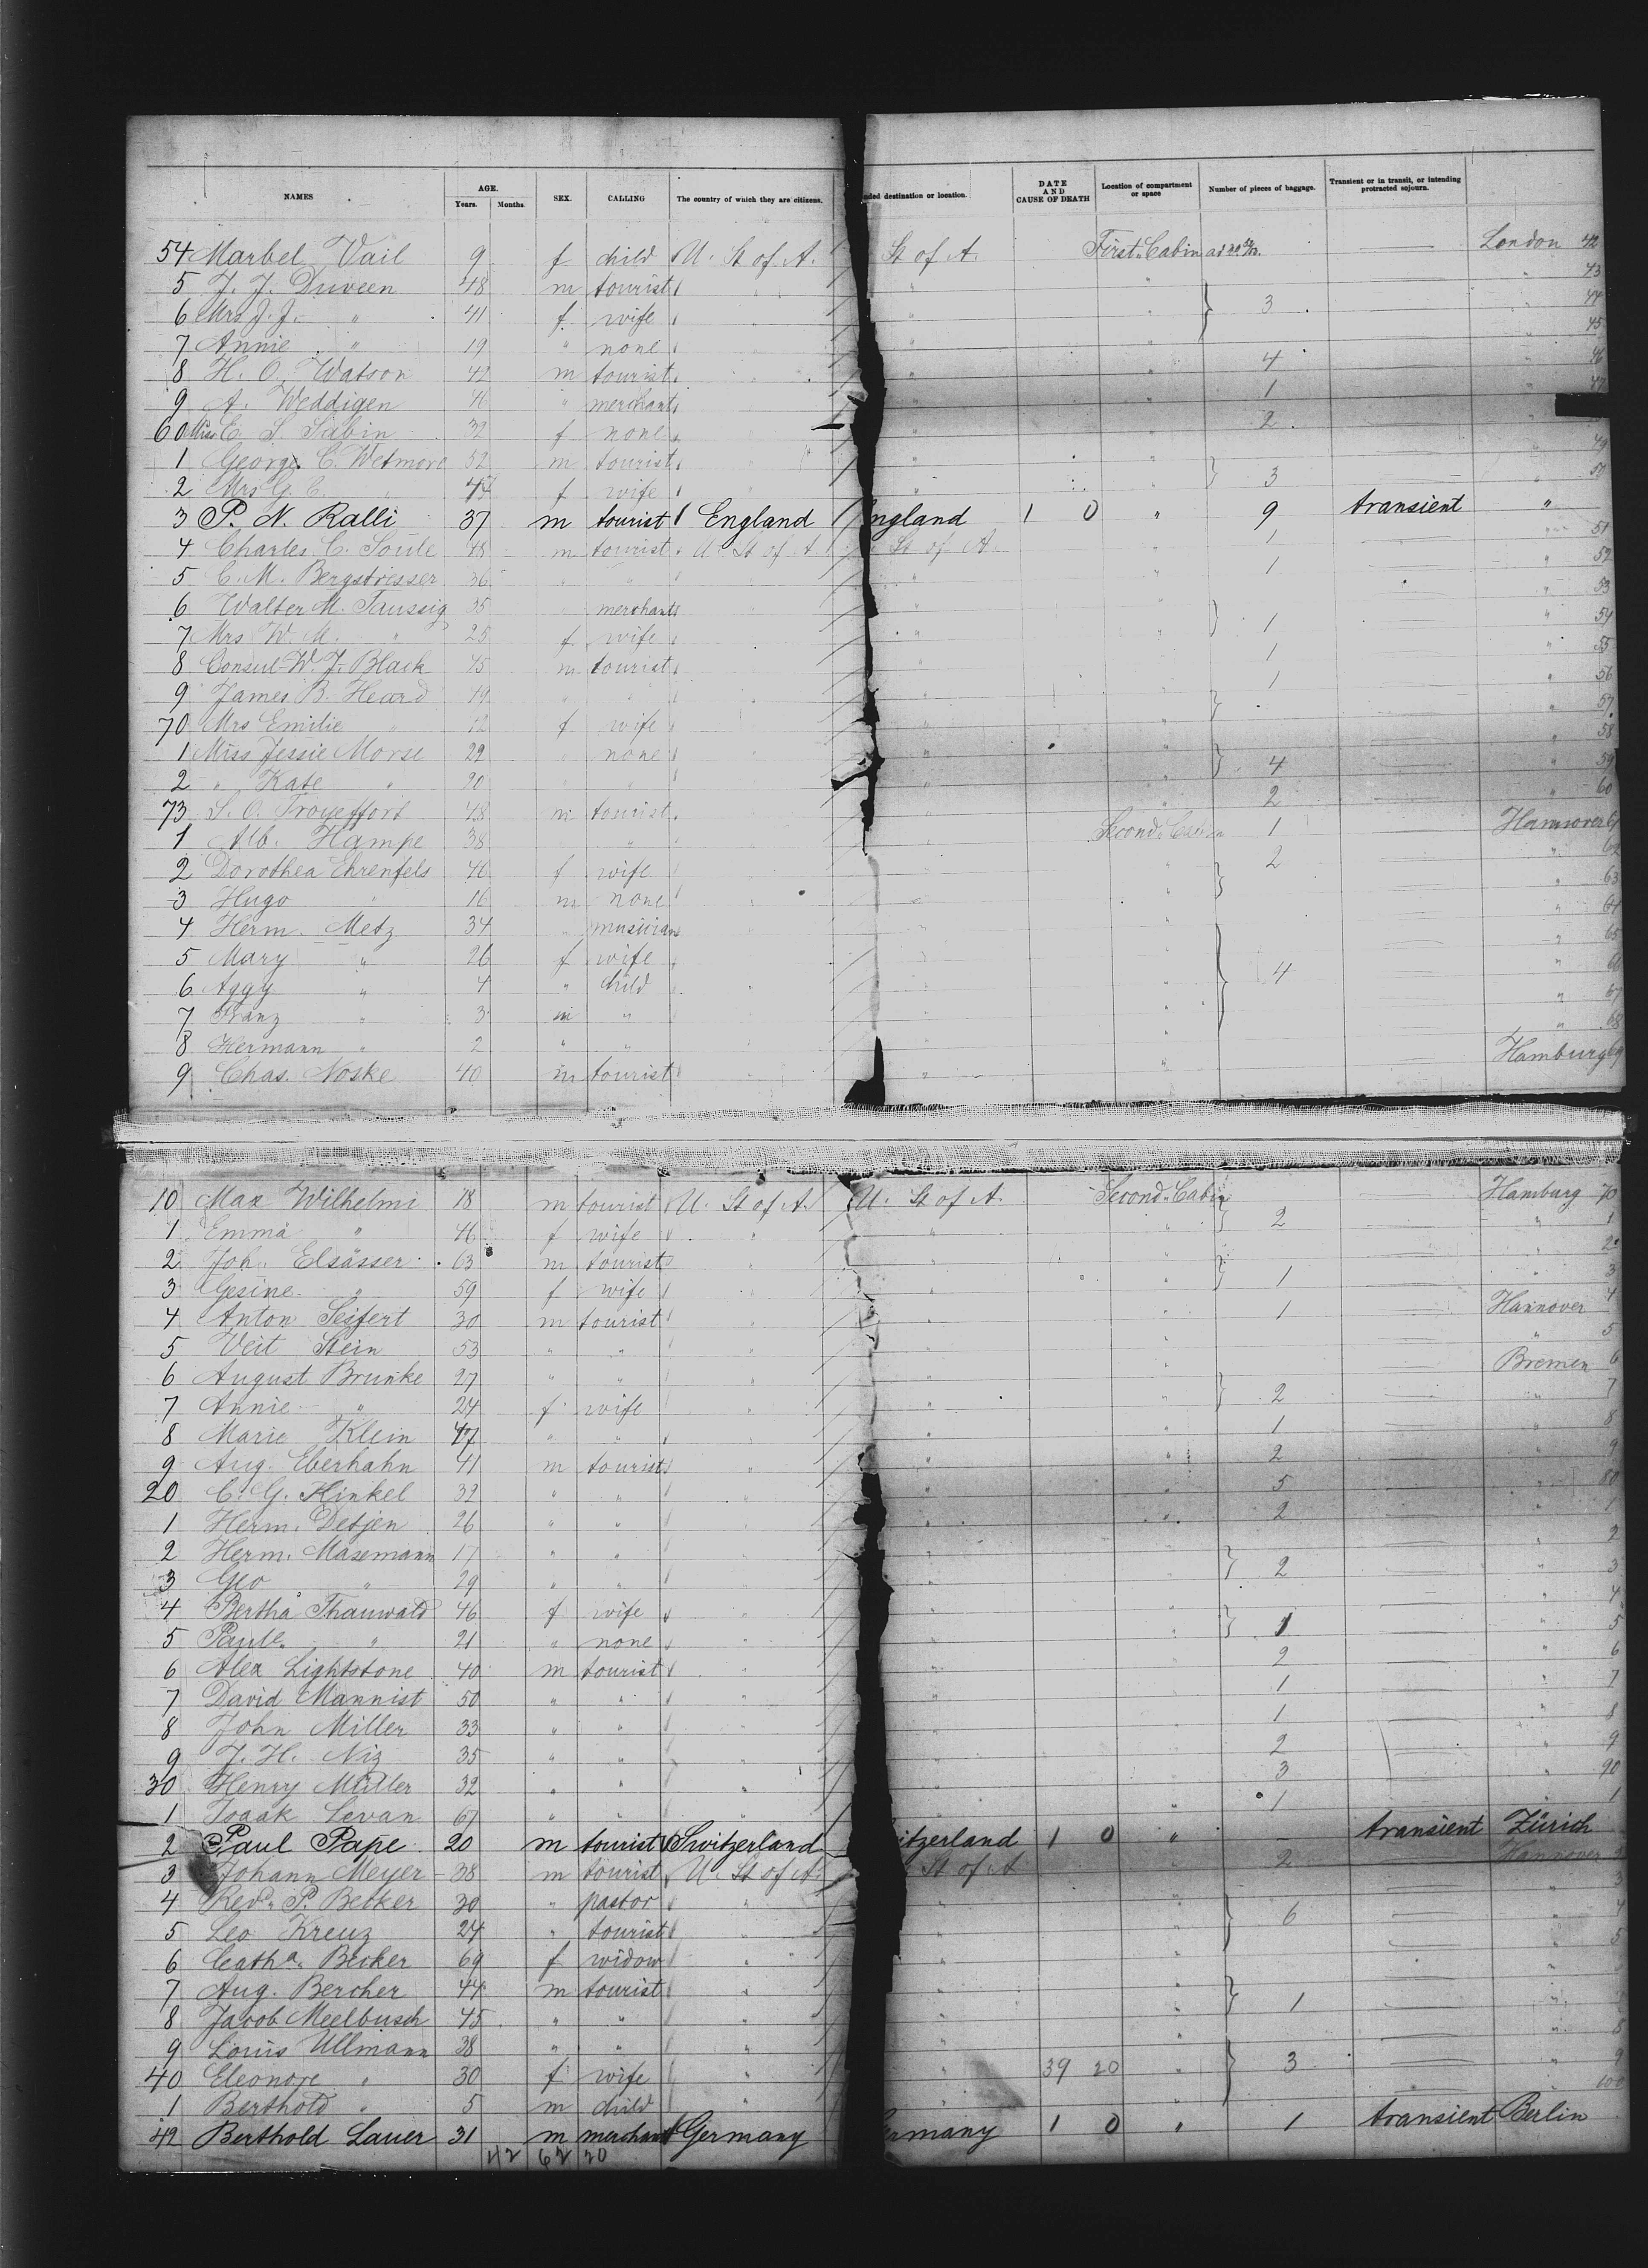 NAMES AGE. Years. Months. SEX. CALLING The country of which they are citizens. nded destination or location. DATE AND CAUSE OF DEATH Location of compartment or space Number of pieces of baggage. Transient or in transit, or intending protracted sojourn.
54 Marbel Vail 9 f child U. St of A. St of A. First Cabin London 42
5 J. J. Duveen 48 m tourist " " 43
6 Mrs J. J. " 41 f wife " 3 44
7 Annie " 19 " none " 45
8 H. O. Watson 42 m tourist " 4 46
9 A. Weddigen 46 " merchant " 1 47
60 Miss E. S. Sabin 32 f none " 2
1 George C. Wetmore 52 m tourist " 49
2 Mrs G. C. " f wife " 3 50
3 P. N. Ralli 37 m tourist England ngland 1 0 " 9 transient "
4 Charles C. Soule 48 m tourist U. St of A. St of A. 1 51
5 C. M. Bergstresser 36 " " " 1 52
6 Walter M. Taussig 35 merchant " 53
7 Mrs W. M. " 25 f wife " 1 54
8 Consul W. J. Black 45 m tourist " 1 55
9 James B. Heard " 1 56
70 Mrs Emilie " f wife " 57
1 Miss Jessie Morse 29 none " 58
2 " Kate " " 4 59
73 48 m tourist 2 60
1 Alb. Hampe 38 " " Second Cabin 1 Hannover 61
2 Dorothea Ehrenfels 46 f wife 2 " 62
3 Hugo " 16 m none " 63
4 Herm. Metz 34 " musician " 64
5 Mary " 26 f wife " 65
6 Aggy " 4 " child 4 " 66
7 Franz " 3 m " " 67
8 Hermann " 2 " " " 68
9 Chas. Noske 40 m tourist " " Hamburg 69
10 Max Wilhelmi 18 m tourist U. St of A. U. St of A. Second Cabin Hamburg 70
1 Emma " 46 f wife " " 2 " 1
2 Joh. Elsässer 63 m tourist " 2
3 Gesine " 59 f wife 1 " 3
4 Anton Seifert 30 m tourist " 1 Hannover 4
5 Veit Stein 53 " " " " 5
6 August Brunke 27 " " " Bremen 6
7 Annie " 24 f wife " 2 " 7
8 Marie Klein 47 " " " 1 " 8
9 Aug. Eberhahn 41 m tourist " 2 " 9
20 C. G. Hinkel 32 " " " 5 " 80
1 Herm. Detjen 26 " " " 2 " 1
2 Herm. Masemann 17 " " " 2
3 Geo " 29 " " " 2 " 3
4 Bertha Thauwald 46 f wife " " 4
5 Paule " 21 " none " 1 " 5
6 Alex Lightstone 40 m tourist " 2 " 6
7 David Mannist 50 " " " 1 " 7
8 John Miller 33 " " " 1 " 8
9 J. H. Niz 35 " " " 2 " 9
30 Henry Müller 32 " " " 3 " 90
1 Isaak Levan 67 " " " 1 " 1
2 Paul Pape 20 m tourist Switzerland itzerland 1 0 " — transient Zürich
3 Johann Meyer 38 m tourist U. St of A. St of A. 2 Hannover
4 Revd. P. Becker 30 " pastor " " " 3
5 Leo Kreuz 24 " tourist " " 6 " 4
6 Catha. Becker 69 f widow " " " 5
7 Aug. Bercher 44 m tourist " " "
8 Jacob Meelbusch 45 " " " " 1 "
9 Louis Ullmann 38 " " " " " 8
40 Eleonore " 30 f wife " " 39 20 " 3 " 9
1 Berthold " 5 m child " " " 100
42 Berthold Lauer 31 m merchant Germany rmany 1 0 " 1 transient Berlin
42 62 20